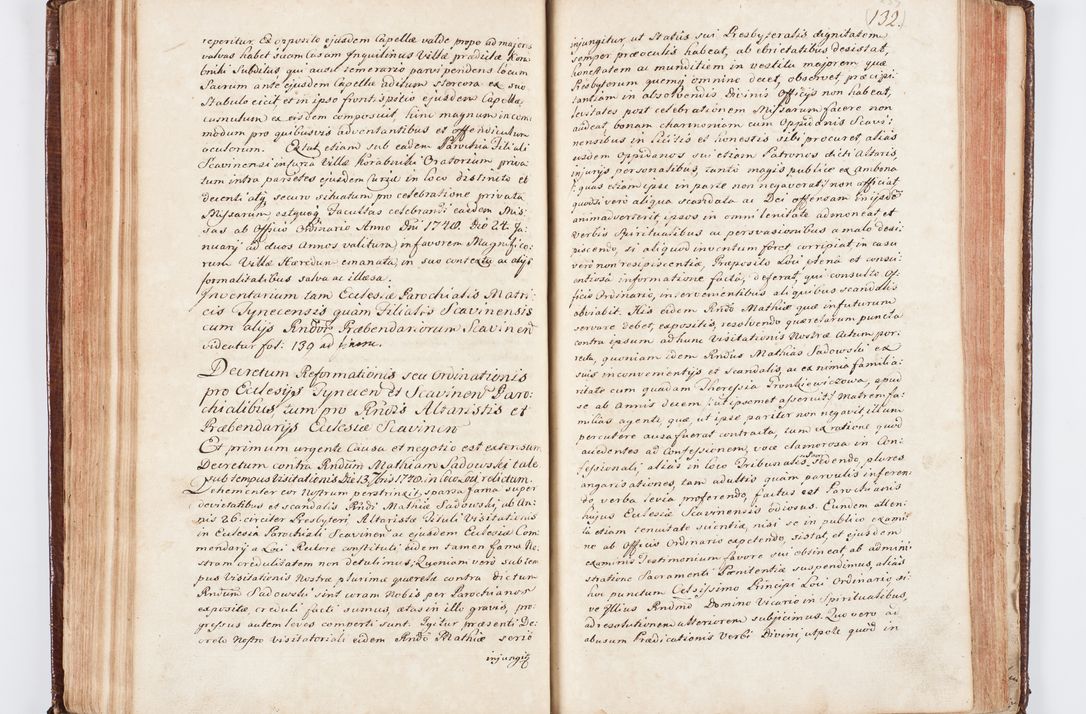 reperitur. Ex opposito ejusdem Capellæ valde prope ad majores
valvas habet suam Casam Inquilinus Villæ prædictæ Kora-
bniki Subditus qui ausu temerario parvi pendens locum
Sacrum ante ejusdem Capellæ aditum stercora ex suo
Stabulo eicit et in ipso frontispitio ejusdem Capellæ,
cumulum ex eisdem composuit, hinc magnum incom
modum pro quibusvis adventantibus et offendiculum
oculorum. Extat etiam sub eadem Parochia Filiali
Scavinensi in Curia Villæ Korabniki Oratorium priva
tum intra parietes ejusdem Curiæ in loco distincto et
decenti aliq securo situatum pro celebratione privata
Missarum estque Facultas celebrandi eædem Mis-
sas ab Officio Ordinario Anno Dni 1748. Die 24. Ja-
nuarij ad duos Annos valitura in favorem Magnifico-
rum Villæ Hæredum emanata, in suo contextu ac alijs
formalitatibus salva ac illæsa.
Inventarium tam Ecclesiæ Parochialis Matri-
cis Tynecensis quam Filialis Scavinensis
cum alijs Rndor Præbendariorum Scavinen
videatur fol: 139 ad
Decretum Reformationis seu Ordinationis
pro Ecclesijs Tynecen et Scavinen Paro-
chialibus tum pro Rndis Altaristis et
Præbendarijs Ecclesiæ Scavinen
Et primum urgente Causa et negotio est extensum
Decretum contra Rndum Mathiam Sadowski tale
sub tempus Visitationis Die 13 Xbris 1748. in loco Loci relictum.
Vehementer cor Nostrum perstrinxit, sparsa fama super
ocvietatibus et scandalis Rndi Mathiæ Sadowski, ab An-
nis 26. circiter Presbyteri Altaristæ Tituli Visitationis
in Ecclesia Parochiali Scavinen ac ejusdem Ecclesiæ Com
mendarij a Loci Rectore constituti eidem tamen fama No-
stram credulitatem non detulimus; Quoniam vero sub tem
pus Visitationis Nostræ plurimæ querelæ contra dictum
Rndum Sadowski sint coram Nobis per Parochianos
expositæ, creduli facti sumus, ætas in illo gravis, pro-
gressus autem leves comperti sunt. Igitur præsenti De-
creto Nostro Visitatoriali eidem Rndo Mathiæ serio
injungitg
132.
injungitur ut Status sui Presbyteralis dignitatem
semper præ oculis habeat, ab ebrietatibus desistat,
honestatem ac munditiem in vestitu majorem quæ
Presbyterum quemq omnino decet, observet præcipi-
tantiam in absolvendis Divinis Officijs non habeat,
levitates post celebrationem Missarum facere non
audeat, bonam charmoniam cum Oppidanis Scavi-
nensibus in licitis et honestis sibi procuret, alias
eosdem Oppidanos sui etiam Patronos dicti Altaris,
injurijs personatibus, tanto magis publice ex ambona
(: quas etiam ipse in parte non negaverat:) non afficiat
quodsi vero aliqua scandala ac Dei offensam in ijsdem
animadverterit, ipsos in omni lenitate admoneat et
verbis spiritualibus ac persvasionibus a malo desi-
piscendo, si aliquod inventum foret corripiat in casu
vero non resipiscentiæ, Præposito Loci plena et consci-
entiosa informatione facta, deferat, qui consulto Of-
ficio Ordinario, intervenientibus aliquibus scandalis
obviabit. His eidem Rndo Mathiæ quæ in futurum
servare debet, expositis, resolvendo quærelarum puncta
contra ipsum ad hunc Visitationis Nostræ Actum por-
recta, quoniam idem Rndus Mathias Sadowski ex
suis inconvenientijs et scandalis, ac ex nimia familia-
ritate cum quadam Theressia Fronkiewiczowa, apud
se ab Annis decem (: ut ipsemet asseruit:) Matrem fa-
milias agenti, quæ, ut ipse pariter non negavit, illum
percutere ausa fuerat contracta, tum ex ratione quod
accedentes ad Confessionem, voce clamorosa in Con-
fessionali, alias in loco Tribunalis sedendo, plures
angarisationes, tam adultis quam parvulis inferen-
do verba levia proferendo, factus est Parochianis
hujus Ecclesiæ Scavinensis odiosus. Eundem atten-
ta etiam tenuitate scientiæ, nisi se in publico exami-
ne ab Officio Ordinario expetendo, sistat, et ejusdem
examinis Testimonium favore sui obtineat, ab admini-
stratione Sacramenti Pœnitentiæ suspendimus, alias
hoc punctum Celsissimo Principi Loci Ordinario si-
ve Illius Rndmo Domino Vicario in Spiritualibus,
ad resolutionem ulteriorem subjicimus. Quo vero ad
abusum Prædicationis Verbi Divini, utpote quod in